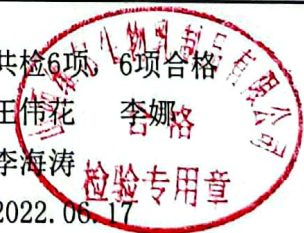 共检6项，6项合格
王伟花 李娜
李海涛
2022.06.17
生物乳制品有限公司
合格
检验专用章